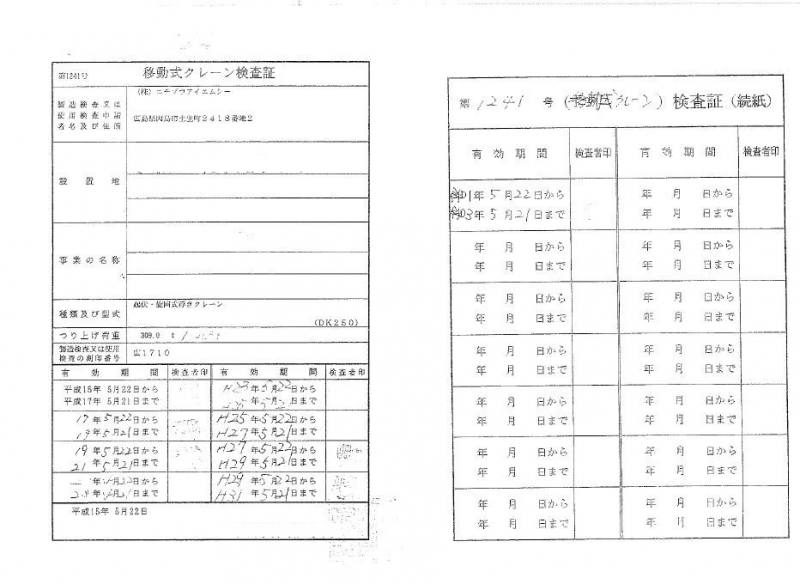 第1241号
移動式クレーン検査証
製造検査又は
使用検査申請
者名及び住所
(株)ニチゾウアイエムシー
広島県因島市土生町2418番地2
設置地
事業の名称
種類及び型式
起伏・旋回式浮きクレーン
(DK250)
つり上げ荷重
309.0 t
製造検査又は使用
検査の刻印番号
広1710
有効期間 検査者印 有効期間 検査者印
平成15年 5月22日から
平成17年 5月21日まで
17年5月22日から
19年5月21日まで
19年5月22日から
21年5月21日まで
H23年5月22日から
年5月 日まで
H25年5月22日から
H27年5月21日まで
H27年5月22日から
H29年5月21日まで
H29年5月22日から
H31年5月21日まで
平成15年 5月22日
第1241号 (移動式クレーン) 検査証(続紙)
有効期間 検査者印 有効期間 検査者印
01年5月22日から
03年5月21日まで
年 月 日から
年 月 日まで
年 月 日から
年 月 日まで
年 月 日から
年 月 日まで
年 月 日から
年 月 日まで
年 月 日から
年 月 日まで
年 月 日から
年 月 日まで
年 月 日から
年 月 日まで
年 月 日から
年 月 日まで
年 月 日から
年 月 日まで
年 月 日から
年 月 日まで
年 月 日から
年 月 日まで
年 月 日から
年 月 日まで
年 月 日から
年 月 日まで